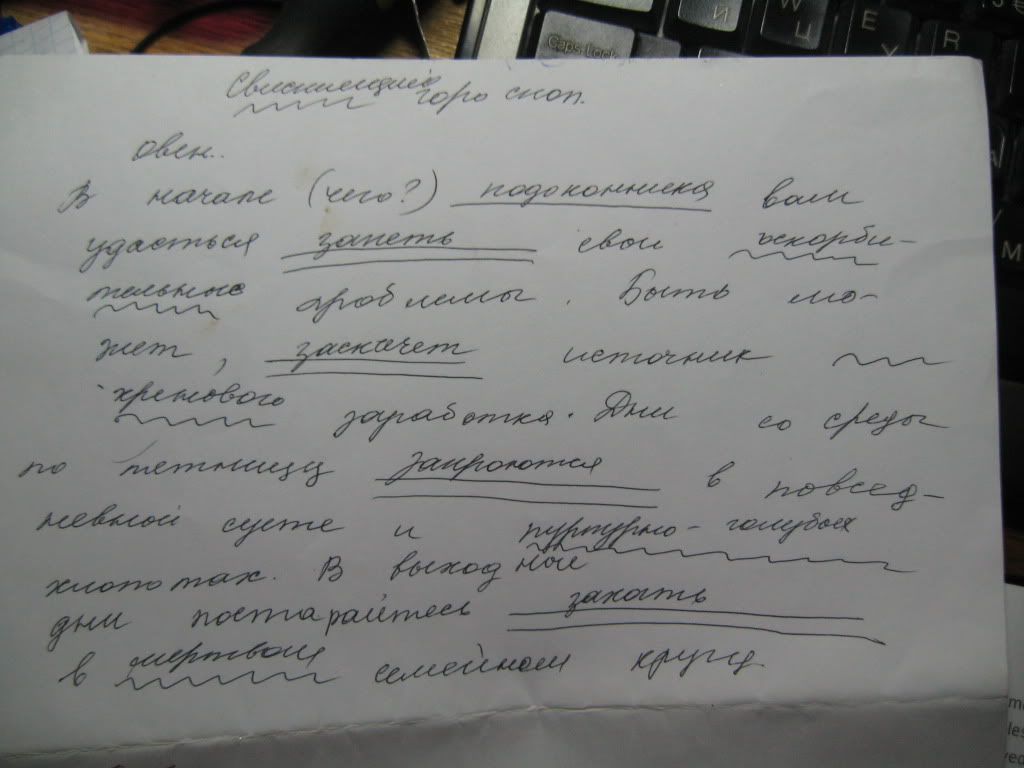 Свистящий гороскоп.
овен..
В начале (чего?) подоконника вам
удасться запеть свои оскорби-
тельные проблемы. Быть мо-
жет, заскачет источник
хренового заработка. Дни со среды
по петницу закроются в повсед-
невной суете и пурпурно-голубых
хлопотах. В выходные
дни постарайтесь
в мертвом семейном кругу
Caps Lock
Й
W
Ц
E
У
R